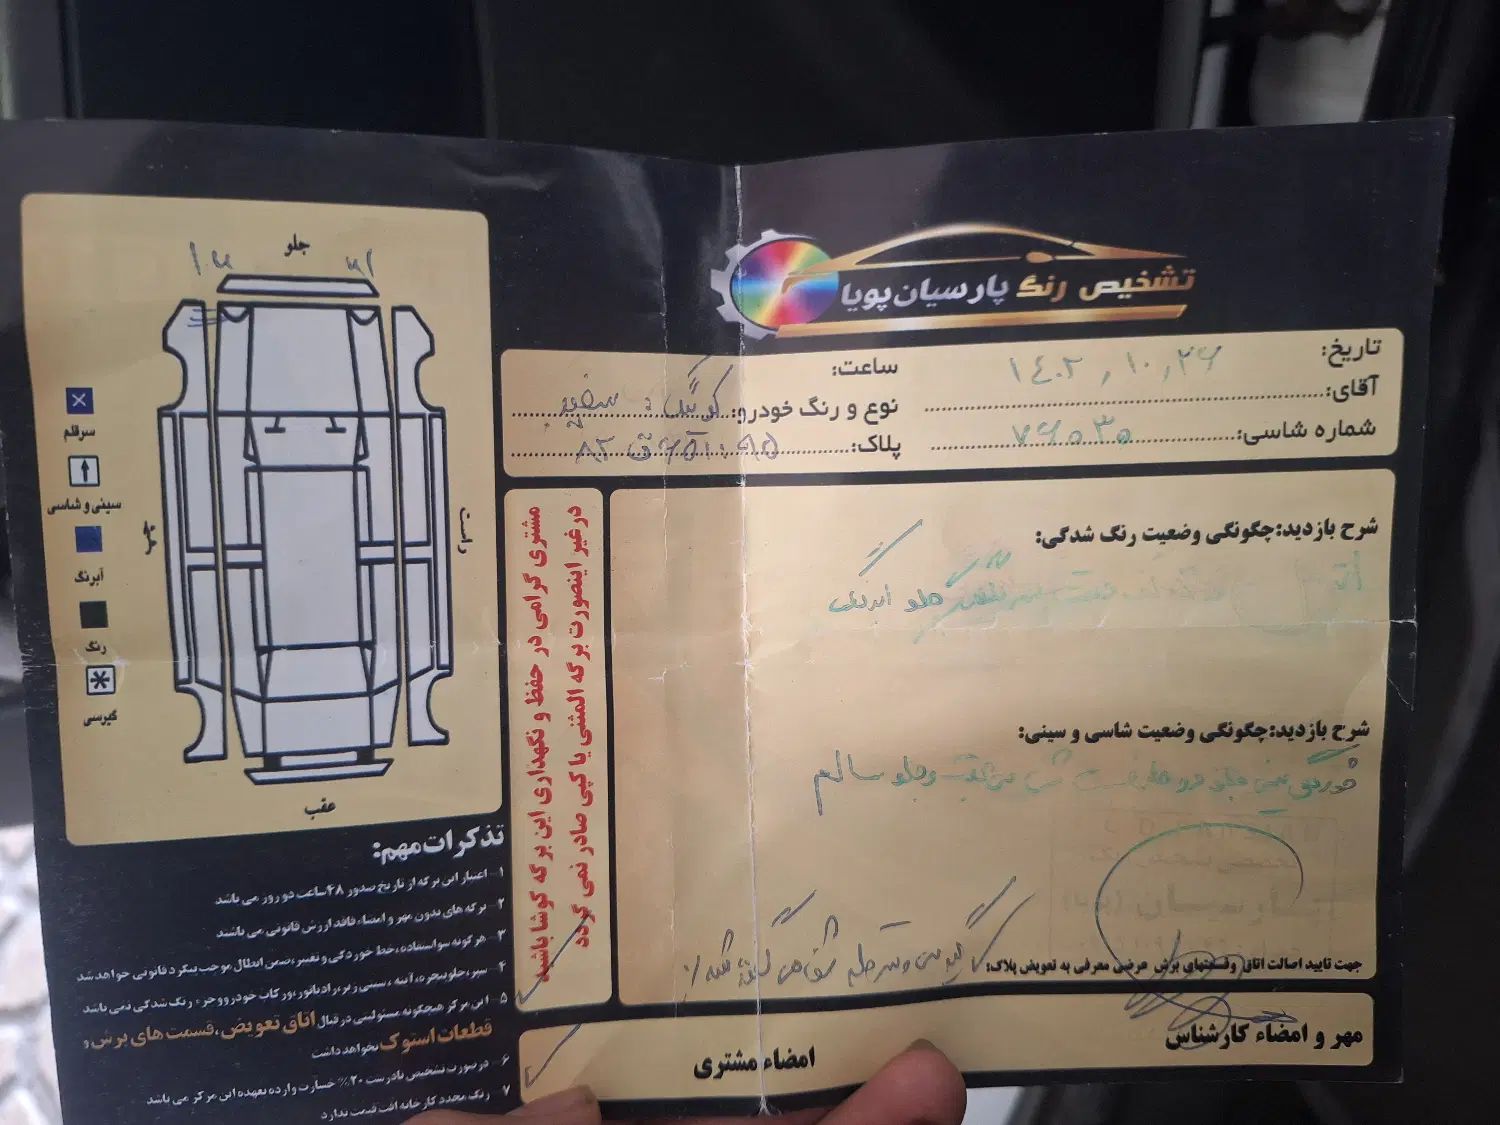 تشخیص رنگ پارسیان پویا
تاریخ: ۱۴۰۲,۱۰,۲۶
ساعت:
آقای:
نوع و رنگ خودرو: کوئیک سفید
شماره شاسی: ۷۶۰۳۵
پلاک:
جلو
چپ
راست
عقب
سرقلم
سینی و شاسی
آبرنگ
رنگ
گیرسی
شرح بازدید: چگونگی وضعیت رنگ شدگی:
گلگیر جلو آبرنگ
شرح بازدید: چگونگی وضعیت شاسی و سینی:
خوردگی سینی جلو در و جلو سالم
جهت تایید اصالت اتاق وقسمتهای برش عرضی معرفی به تعویض پلاک:
مهر و امضاء کارشناس
امضاء مشتری
مشتری گرامی در حفظ و نگهداری این برگه کوشا باشید
درغیر اینصورت برگه المثنی یا کپی صادر نمی گردد
تذکرات مهم:
۱- اعتبار این برگه از تاریخ صدور ۴۸ساعت دو روز می باشد
۲- برگه های بدون مهر و امضاء فاقد ارزش قانونی می باشند
۳- هرگونه سواستفاده، خط خوردگی و تغییر، ضمن ابطال موجب پیگرد قانونی خواهد شد
۴- سپر، جلوپنجره، آینه، سینی زیر، رادیاتور، ورکاب خودرو و جزء رنگ شدگی نمی باشد
۵- این مرکز هیچگونه مسئولیتی در قبال اتاق تعویض، قسمت های برش و
قطعات استوک نخواهد داشت
۶- درصورت تشخیص نادرست ۲۰٪ خسارت وارده بعهده این مرکز می باشد
۷- رنگ مجدد کارخانه افت قیمت ندارد